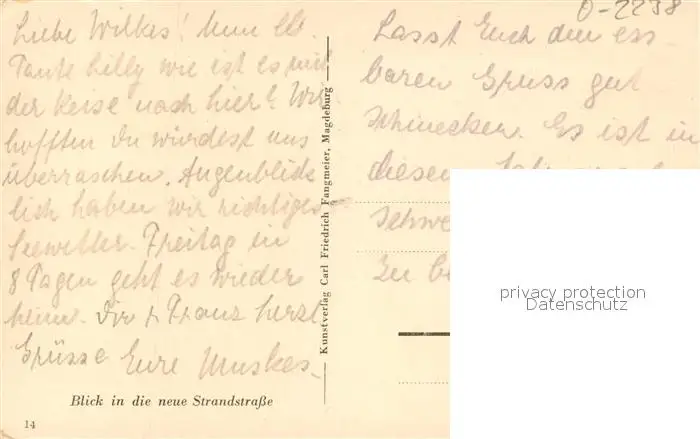 Liebe Wilkes! Nun lb.
Tante Lilly wie ist es mit
der Reise nach hier? Wir
hofften Du würdest uns
überraschen. Augenblick
lich haben wir richtiges
Seewetter. Freitag in
8 Tagen geht es wieder
heim. Dir + Franz herzl.
Grüsse Eure Muskes.
Blick in die neue Strandstraße
14
Kunstverlag Carl Friedrich Fangmeier, Magdeburg
0-2238
Lasst Euch den ess
baren Gruss gut
schmecken. Es ist in
diesem
schwe
Zu be
privacy protection
Datenschutz